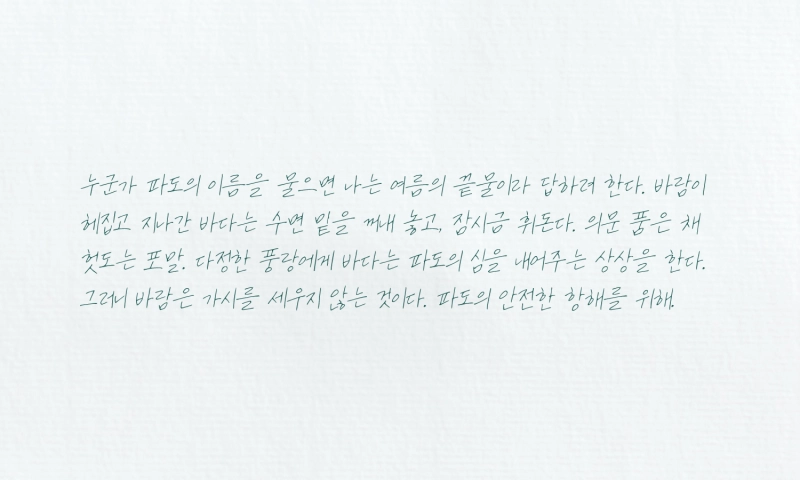 누군가 파도의 이름을 물으면 나는 여름의 끝물이라 답하려 한다. 바람이
헤집고 지나간 바다는 수면 밑을 꺼내 놓고, 잠시금 휘돈다. 의문 품은 채
헛도는 포말. 다정한 풍랑에게 바다는 파도의 심을 내어주는 상상을 한다.
그러니 바람은 가시를 세우지 않는 것이다. 파도의 안전한 항해를 위해.